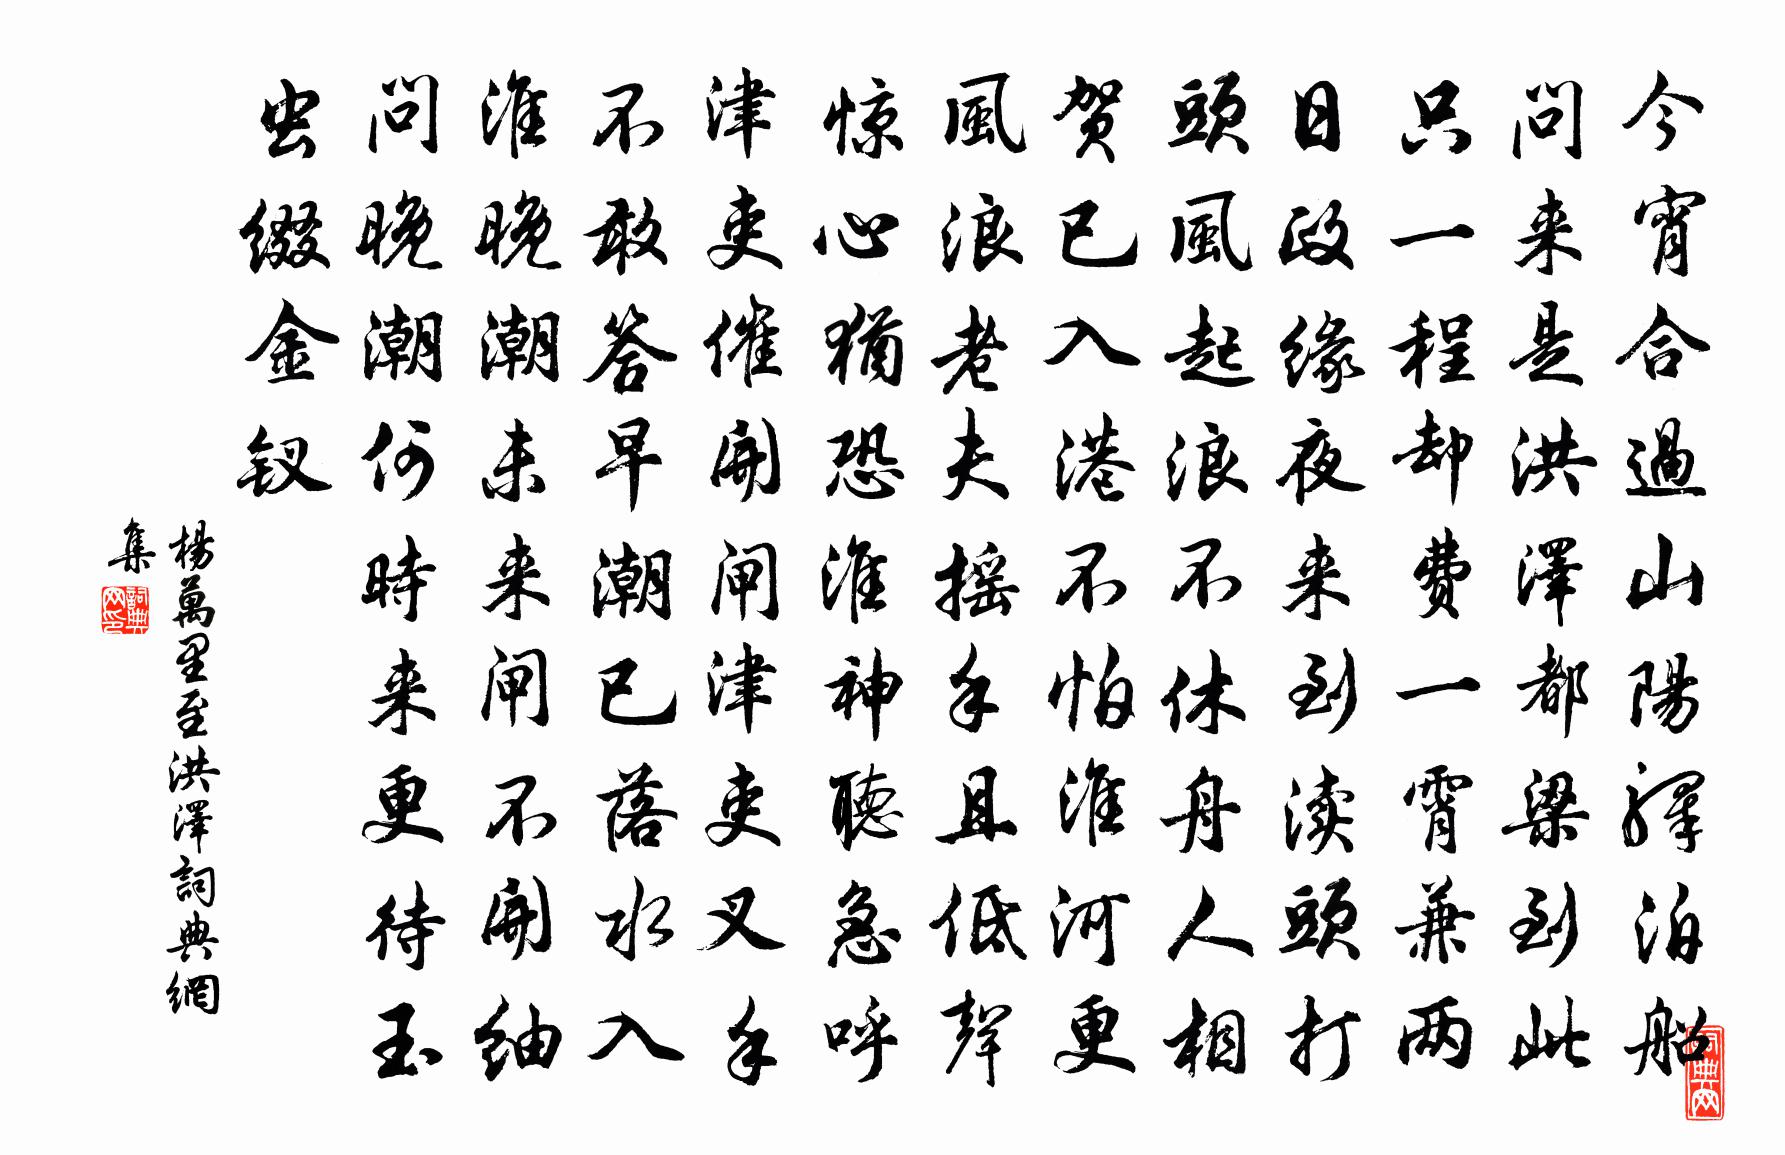 今宵合過山陽驛泊船
問来是洪澤都梁到此
只一程却費一霄兼两
日政缘夜来到渎頭打
頭風起浪不休舟人相
贺已入港不怕淮河更
風浪老夫摇手且低聲
惊心猶恐淮神聽急呼
津吏催開闸津吏叉手
不敢答早潮已落水入
淮晚潮未来闸不開細
問晚潮何時来更待玉
虫缀金钗
楊萬里至洪澤詞典網
集
詞典网印
詞典网